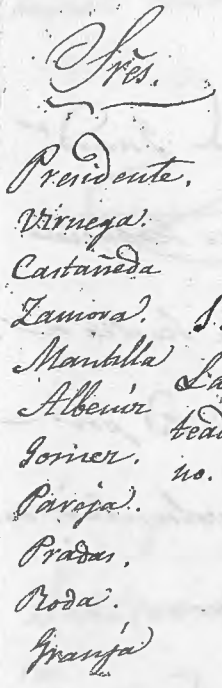 Sres.
Presidente.
Viruega.
Castañeda
Zamora.
Mantilla
Albeniz
Gomez.
Pareja.
Pradas.
Roda.
Granja